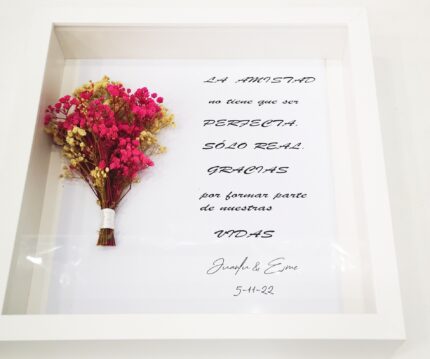 LA AMISTAD
no tiene que ser
PERFECTA.
SÓLO REAL.
GRACIAS
por formar parte
de nuestras
VIDAS
Juanlu & Esme
5-11-22